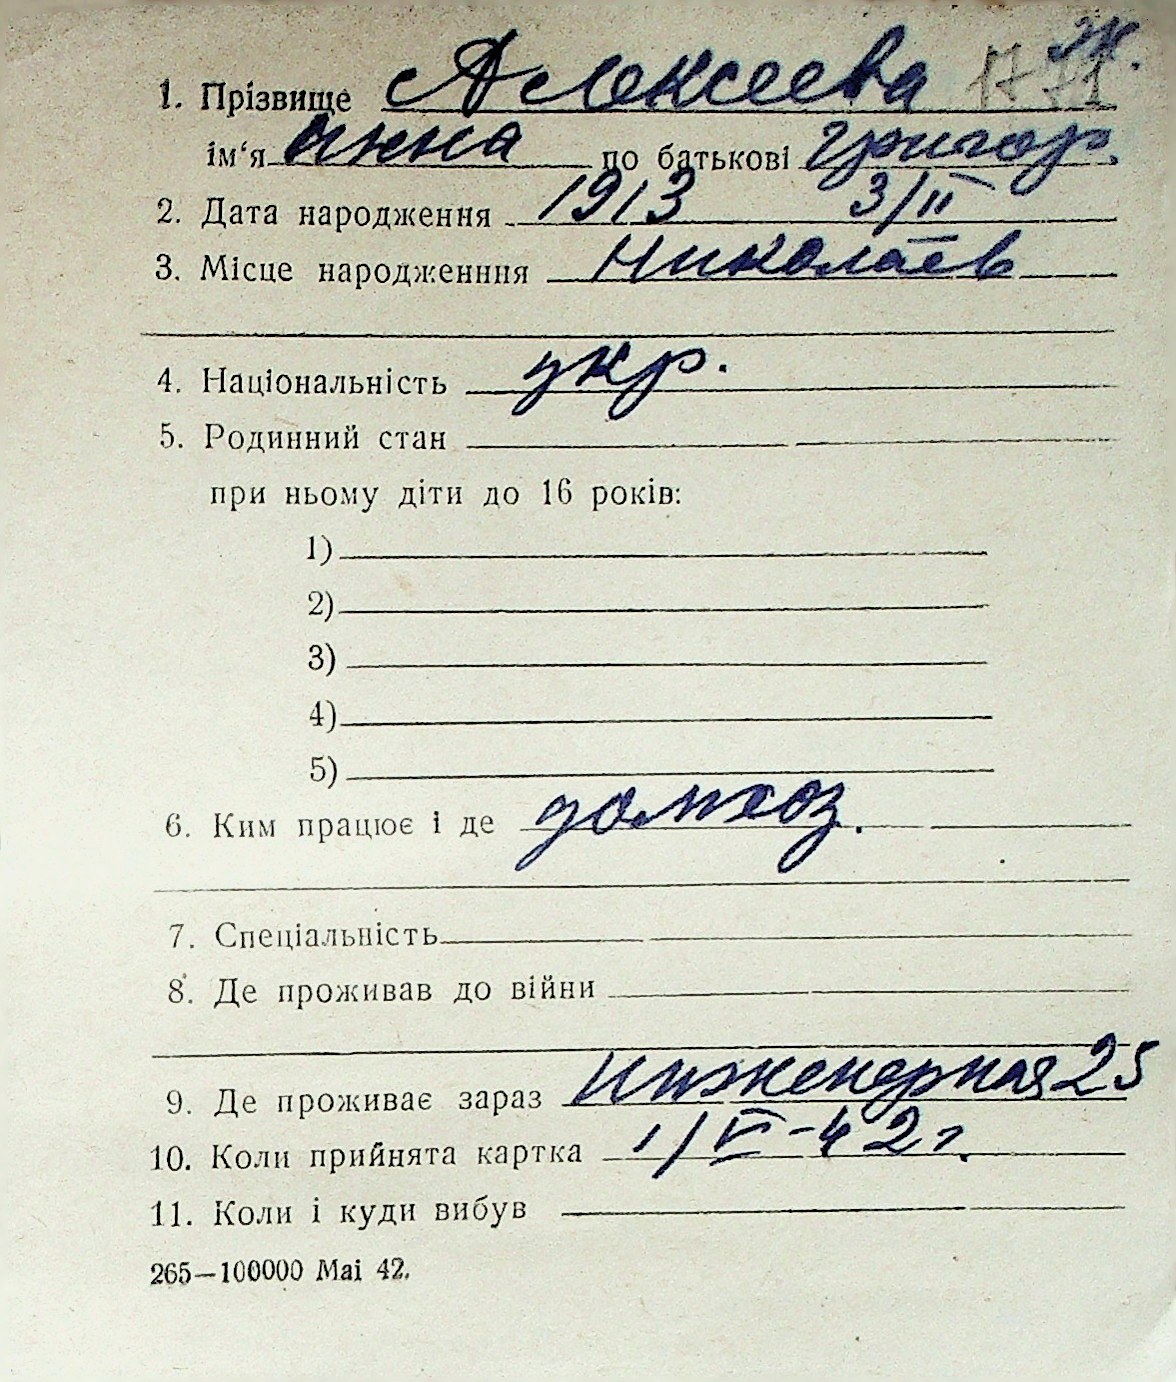 ж.
1. Прізвище Алексеева 1771
ім‘я Анна по батькові Григор.
2. Дата народження 1913 3/II
3. Місце народженння Николаев
4. Національність укр.
5. Родинний стан
при ньому діти до 16 років:
1)
2)
3)
4)
5)
6. Ким працює і де домхоз.
7. Спеціальність
8. Де проживав до війни
9. Де проживає зараз Инженерная 25
10. Коли прийнята картка 1/VI-42 г.
11. Коли і куди вибув
265—100000 Mai 42.